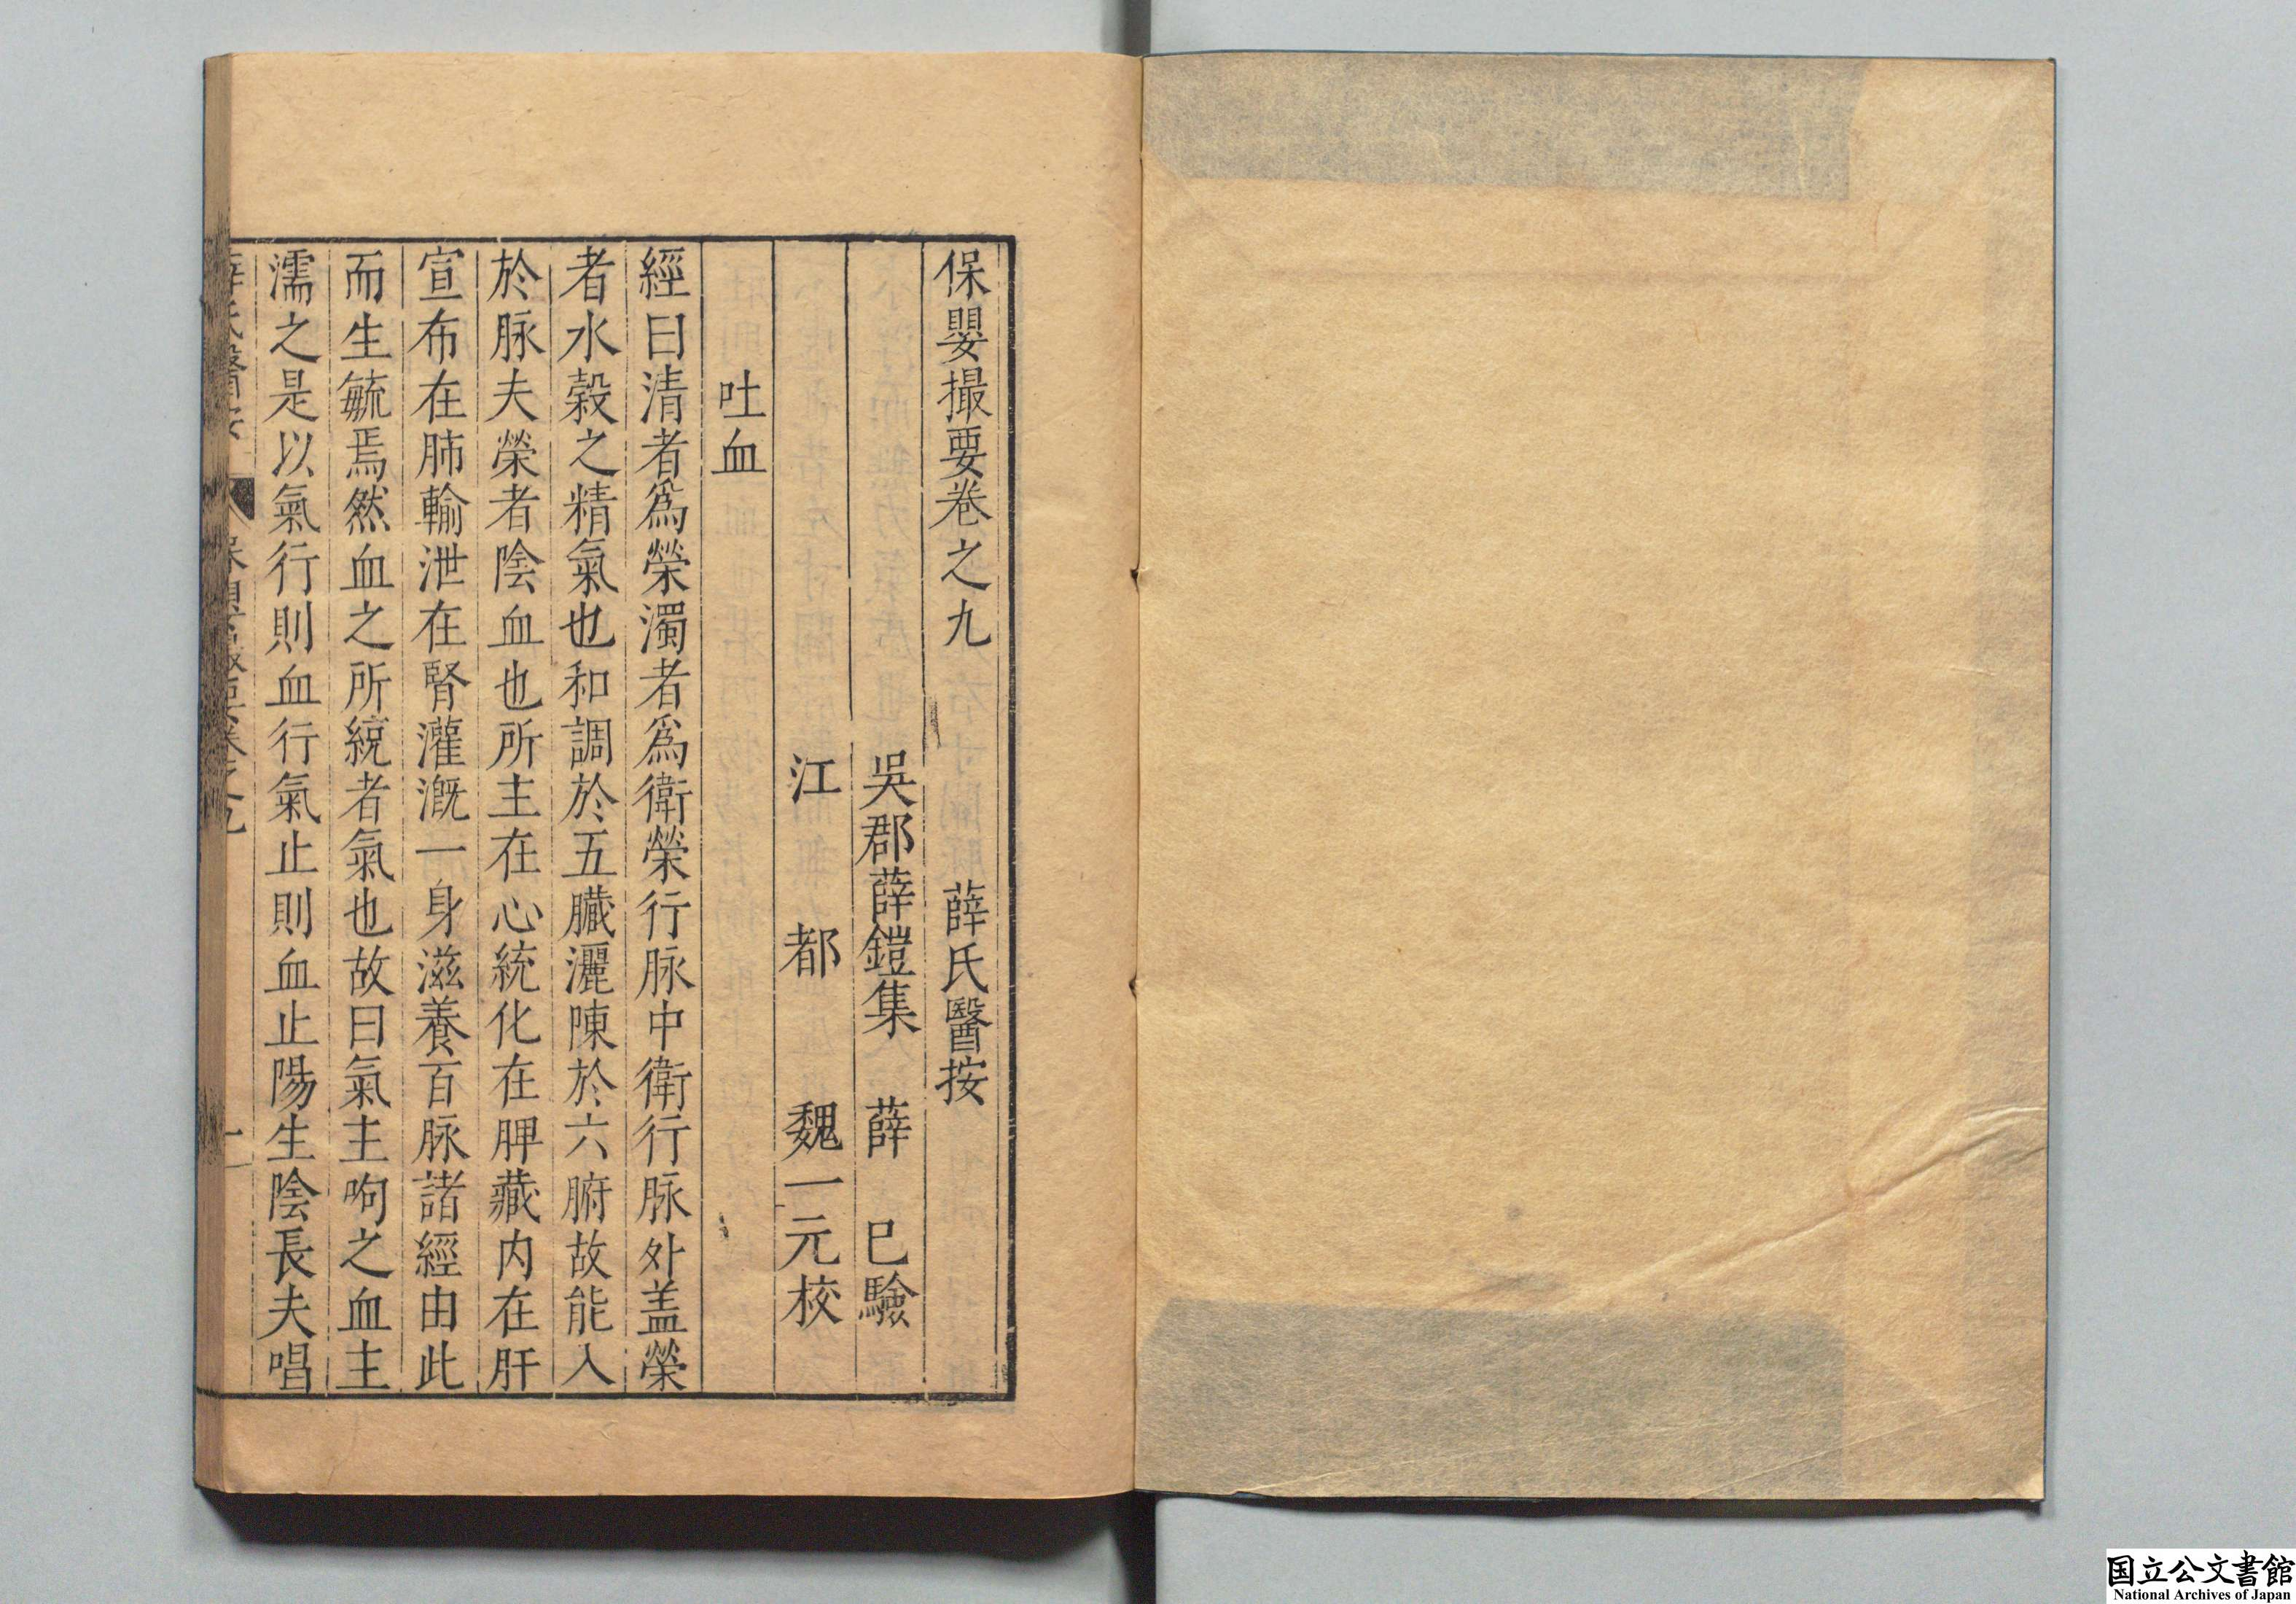 保嬰撮要卷之九 薛氏醫按
吳郡薛鎧集 薛 已驗
江 都 魏一元校
吐血
經曰清者爲榮濁者爲衛榮行脉中衛行脉外盖榮
者水榖之精氣也和調於五臟灑陳於六腑故能入
於脉夫榮者陰血也所主在心統化在脾藏内在肝
宣布在肺輸泄在腎灌溉一身滋養百脉諸經由此
而生毓焉然血之所統者氣也故曰氣主呴之血主
濡之是以氣行則血行氣止則血止陽生陰長夫唱
国立公文書館
National Archives of Japan